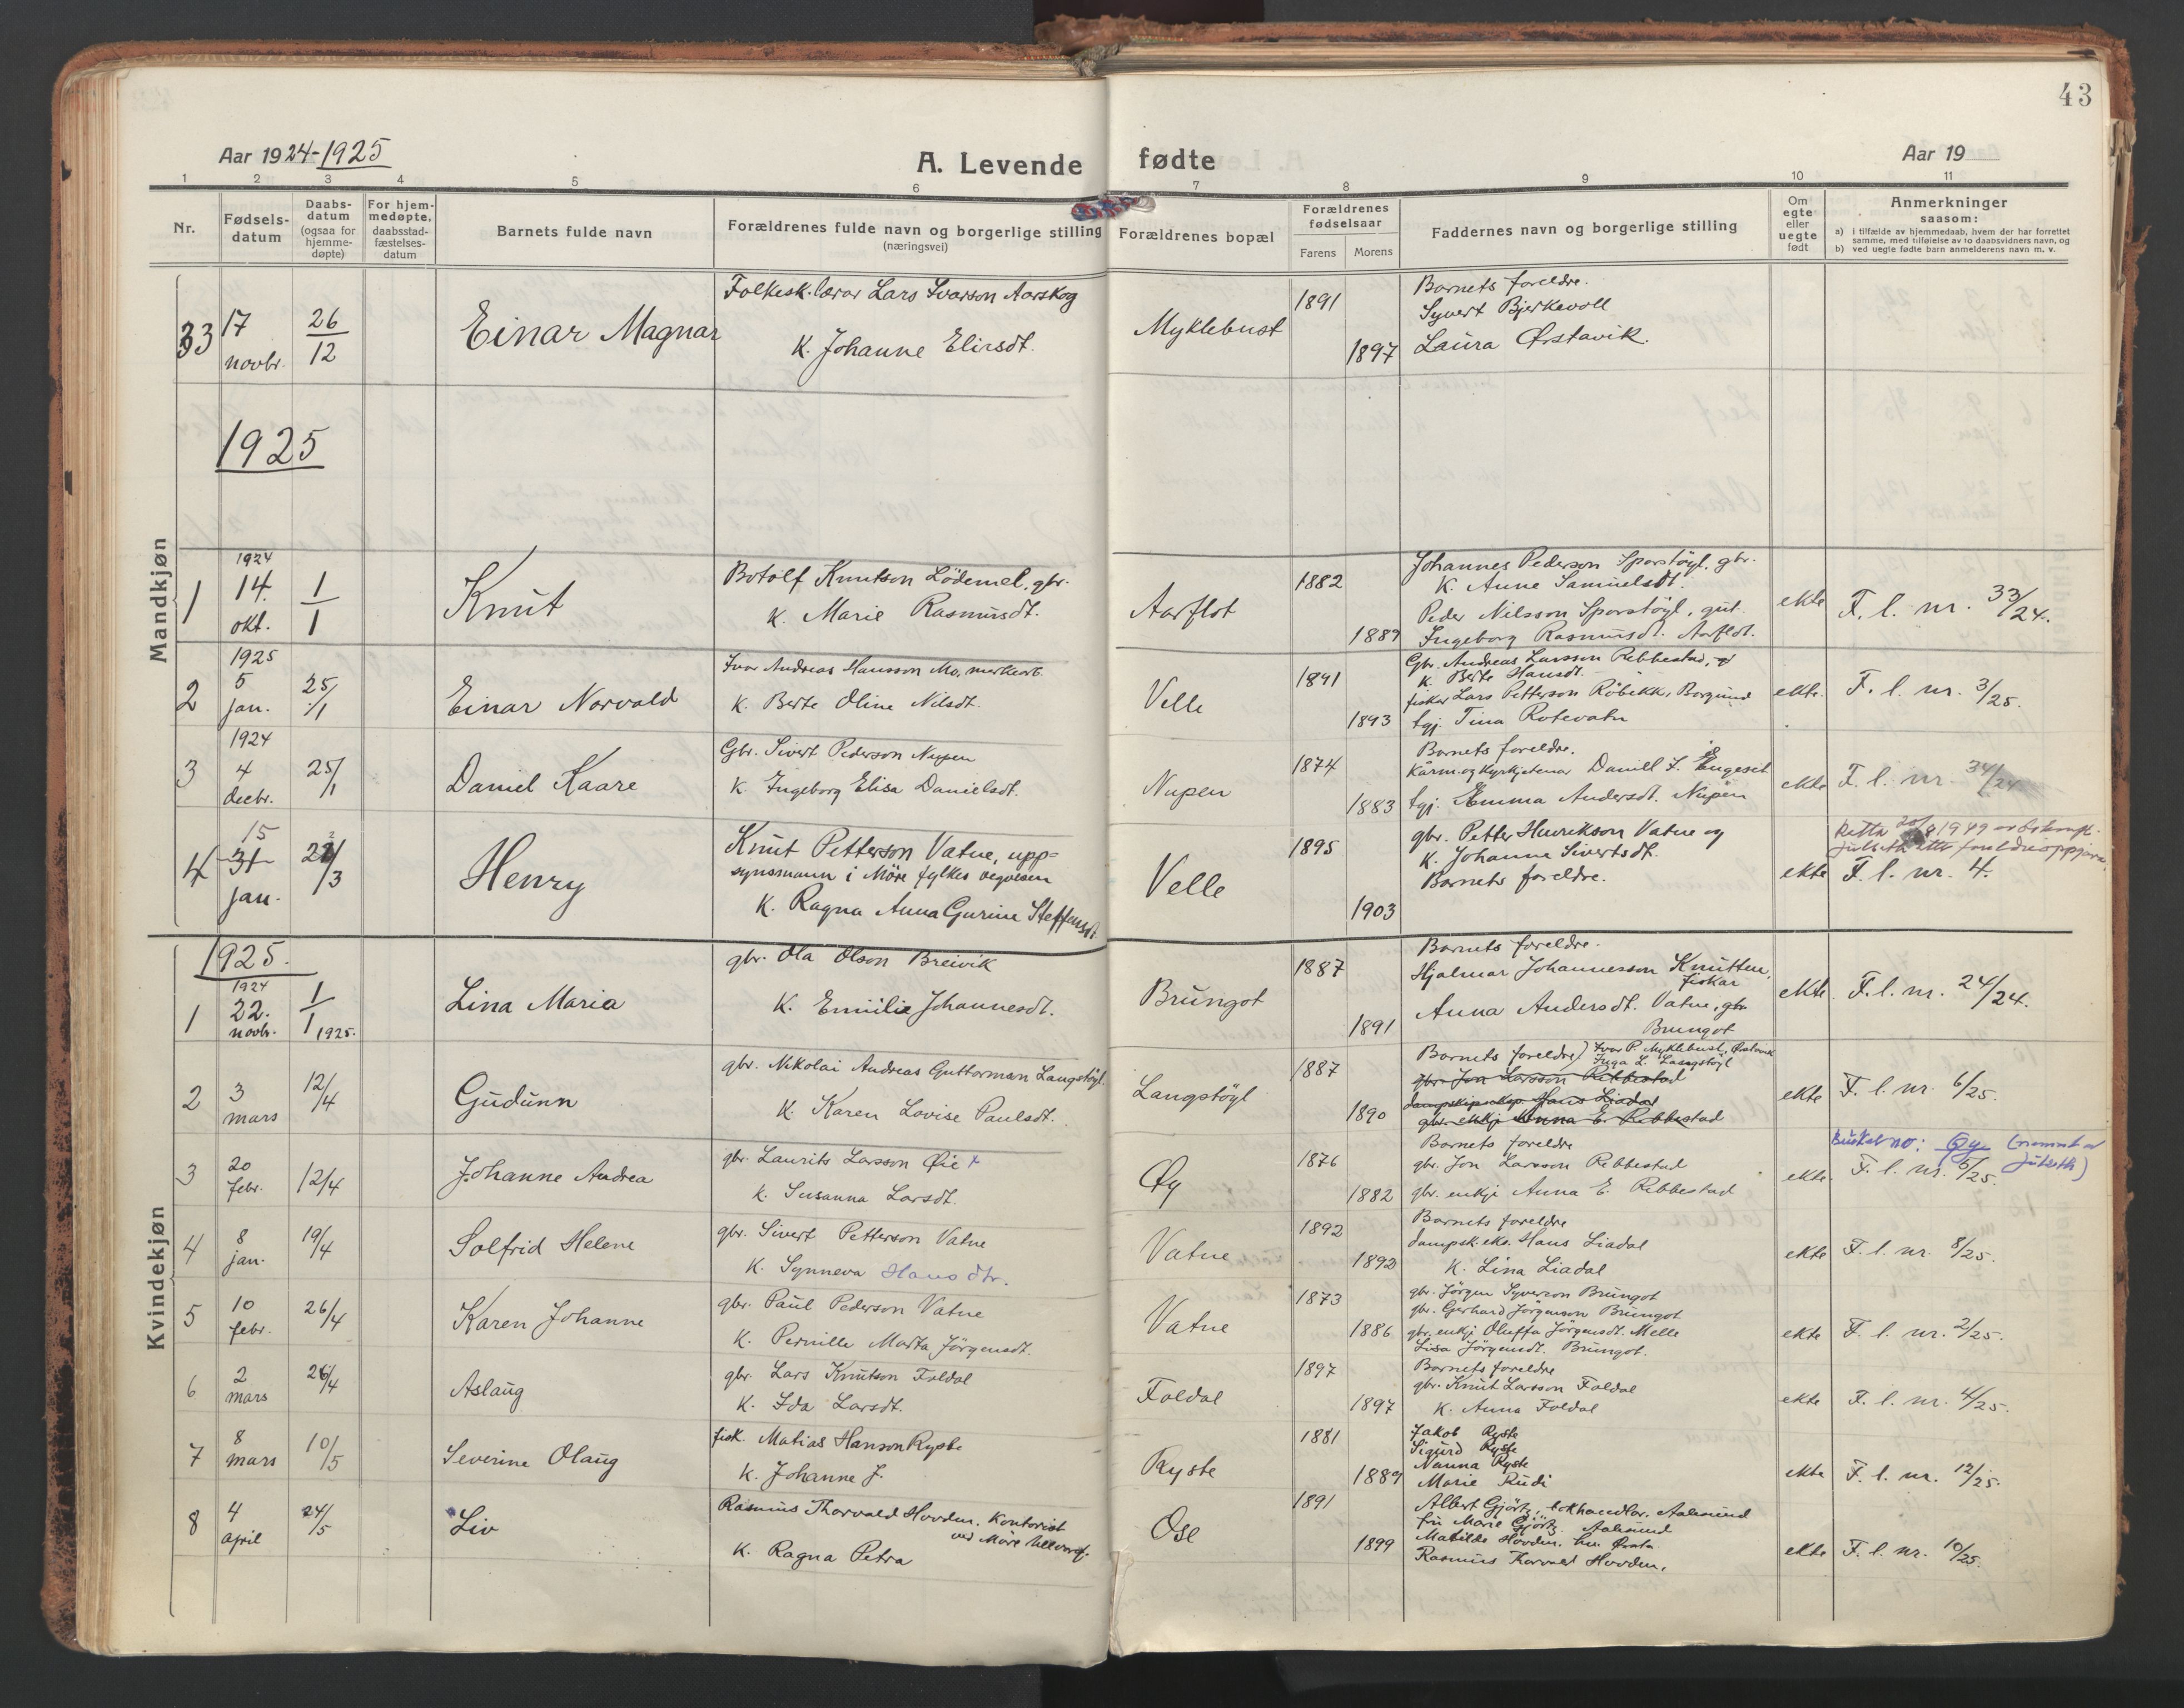 43
Aar 1924-1925
A. Levende fødte
Aar 19
1 2 3 4 5 6 7 8 9 10 11
Nr.
Fødsels-datum
Daabs-datum (ogsaa for hjemme-døpte)
For hjem-medøpte, daabsstad-fæstelses-datum
Barnets fulde navn
Forældrenes fulde navn og borgerlige stilling (næringsvei)
Forældrenes bopæl
Forældrenes fødselsaar
Farens Morens
Faddernes navn og borgerlige stilling
Om egte eller uegte født
Anmerkninger saasom:
a) i tilfælde av hjemmedaab, hvem der har forrettet samme, med tilføielse av to daabsvidners navn, og
b) ved uegte fødte barn anmelderens navn m. v.
Mandkjøn
33 17 novbr. 26/12 Einar Magnar
Folkesk.lærar Lars Ivarson Aarskog
K. Johanne Elirsdt.
Myklebust 1891 1897
Barnets foreldre.
Syvert Bjerkevoll
Laura Ørstavik.
1925
1 1924 14. okt. 1/1 Knut
Botolf Knutson Lödemel, gbr.
K. Marie Rasmusdt.
Aarflot 1882 1889
Johannes Pederson Sporstöyl, gbr.
K. Anne Samuelsdt.
Peder Nilsson Sporstöyl, gut.
Ingeborg Rasmusdt. Aarflot.
ekte F. l. nr. 33/24.
2 1925 5 jan. 25/1 Einar Norvald
Ivar Andreas Hansson Mo,
K. Berte Oline Nilsdt.
Velle 1891 1893
Gbr. Andreas Larsson Ribbestad, og
K. Berte Hansdt.
fiskar Lars Petterson Röbekk, Borgund
tgj. Tina Rotevatn
ekte. F. l. nr. 3/25.
3 1924 4 decbr. 25/1 Daniel Kaare
Gbr. Sivert Pederson Nupen
K. Ingeborg Elisa Danielsdt.
Nupen 1874 1883
Barnets foreldre.
Karm. og Kyrkjetenar Daniel J. Engeset
tgj. Emma Andersdt. Nupen
ekte F. l. nr. 34/24
4 15 31 jan. 22/3 Henry
Knut Petterson Vatne, upp=
synsmann i Möre fylkes vegvesen
K. Ragna Anna Gurine Steffensdt.
Velle 1895 1903
gbr. Petter Henrikson Vatne og
K. Johanne Sivertsdt.
Barnets foreldre.
ekte F. l. nr. 4.
Retta 20/8 1949
Kvindekjøn
1925.
1 1924 22. novbr. 1/1 1925. Lina Maria
gbr. Ola Olson Breivik
K. Emilie Johannesdt.
Brungot 1887 1891
Barnets foreldre.
Hjalmar Johannesson Knutten,
fiskar
Anna Andersdt. Vatne, gbr.
Brungot
ekte. F. l. nr. 24/24.
2 3 mars 12/4 Gudunn
gbr. Nikolai Andreas Guttorman Langstöyl.
K. Karen Lovise Paulsdt.
Langstöyl 1887 1890
Barnets foreldre) Ivar P. Myklebust, Ørstavik
Inga L. Langstöyl
gbr. Jon Larsson Ribbestad
dampskipseksp. Hans Liadal
gbr. enkje Anna E. Ribbestad
ekte F. l. nr. 6/25.
3 20 febr. 12/4 Johanne Andrea
gbr. Laurits Larsson Øie x
K. Susanna Larsdt.
Øy 1876 1882
Barnets foreldre
gbr. Jon Larsson Ribbestad
gbr. enkje Anna E. Ribbestad
ekte. F. l. nr. 5/25.
4 8 jan. 19/4 Solfrid Helene
gbr. Sivert Petterson Vatne
K. Synneva Hansdtr.
Vatne 1892 1892
Barnets foreldre
dampsk.eks. Hans Liadal
K. Lina Liadal
ekte F. l. nr. 8/25.
5 10 febr. 26/4 Karen Johanne
gbr. Paul Pederson Vatne
K. Pernille Marta Jörgensdt.
Vatne 1873 1886
gbr. Jörgen Syverson Brungot
gbr. Gerhard Jörgenson Brungot
gbr. enkje Oluffa Jörgensdt. Melle
Lisa Jörgensdt. Brungot.
ekte F. l. nr. 2/25.
6 2 mars 26/4 Aslaug
gbr. Lars Knutson Foldal
K. Ida Larsdt.
Foldal 1897 1897
Barnets foreldre
gbr. Knut Larsson Foldal
K. Anna Foldal
ekte F. l. nr. 4/25.
7 8 mars 10/5 Severine Olaug
fisk. Matias Hanson Ryste
K. Johanne J.
Ryste 1881 1889
Jakob Ryste
Sigurd Ryste
Nanna Ryste
Marie Rudi
ekte F. l. nr. 12/25.
8 4 april 24/5 Liv
Rasmus Thorvald Hovden. Kontorist
ved Möre
K. Ragna Petra
Ose 1891 1899
Albert Gjörtz, bokhandlar, Aalesund
fru Marie Gjörtz Aalesund
Matilde Hovden, hu. Ørsta
Rasmus Torvald Hovden,
ekte F. l. nr. 10/25.